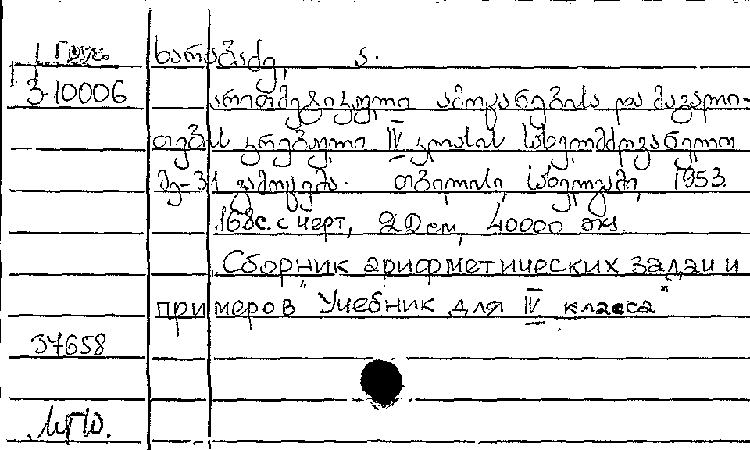 1 Груз.
ხარაბაძე, ა.
3-10006
არითმეტიკული ამოცანების და მაგალი-
თების კრებული IV კლასის სახელმძღვანელო
მე-31 გამოცემა. თბილისი, სახელგამი, 1953.
168с. с черт, 22см, 40000 экз
Сборник арифметических задач и
примеров "Учебник для IV класса"
37658